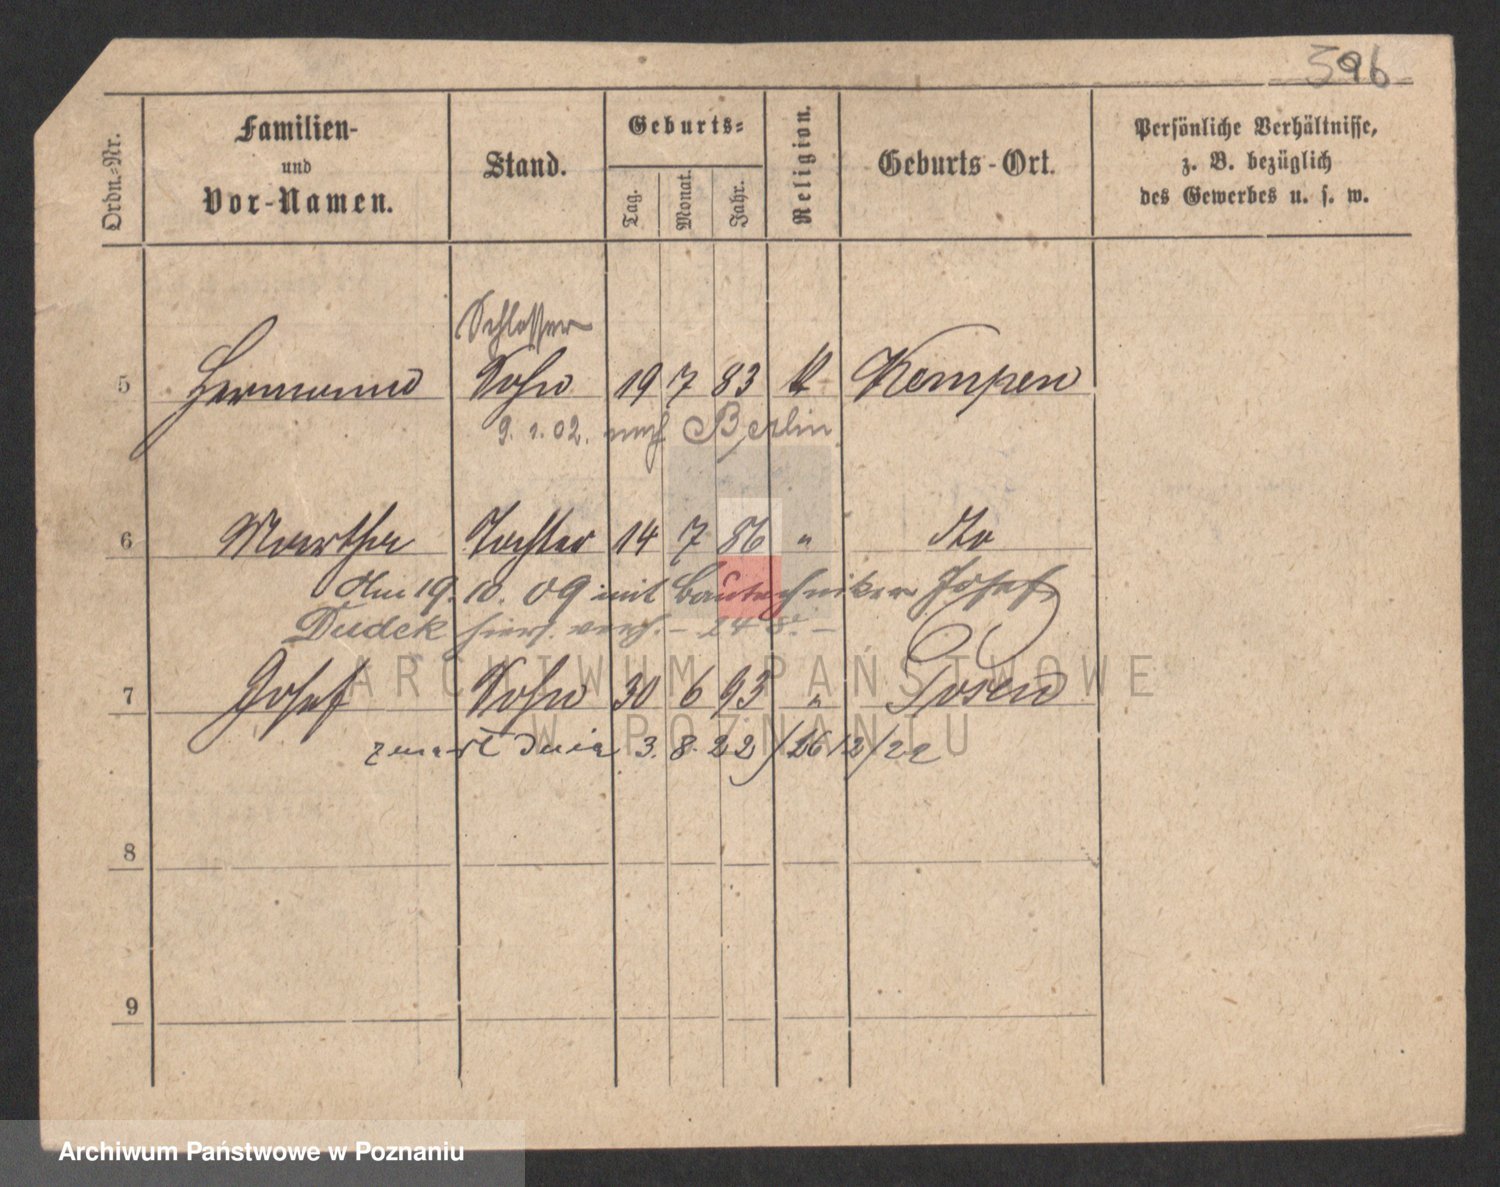 596
Ordn.-Nr.
Familien-
und
Vor-Namen.
Stand.
Geburts-
Tag.
Monat.
Jahr.
Religion.
Geburts-Ort.
Persönliche Verhältnisse,
z. B. bezüglich
des Gewerbes u. s. w.
Schlosser
5 Hermann Sohn 19 7 83 k Kempen
9. 1. 02. nach Berlin
6 Martha Tochter 14 7 86 " dto
Am 19. 10. 09 mit Bautechniker Josef
Dudek hiers. verh. -
7 Josef Sohn 30 6 93 " Posen
zmarł dnia 3. 8. 22 /26/2/22
8
9
ARCHIWUM PAŃSTWOWE
W POZNANIU
Archiwum Państwowe w Poznaniu